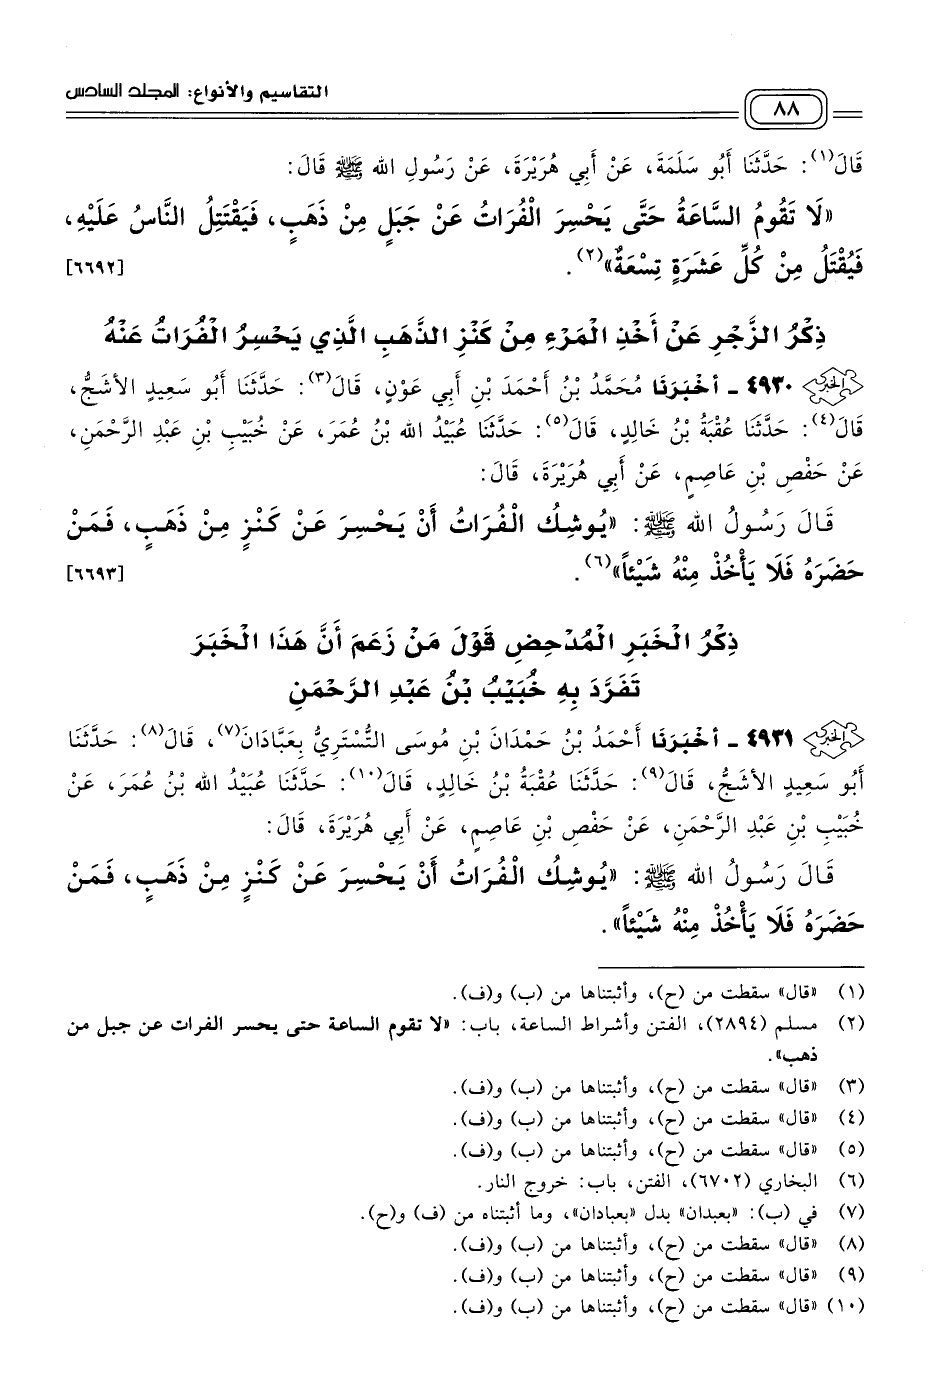 التقاسيم والأنواع: المجلد السادس
٨٨
قَالَ(١): حَدَّثَنَا أَبُو سَلَمَةَ، عَنْ أَبِي هُرَيْرَةَ، عَنْ رَسُولِ الله ﷺ قَالَ:
«لَا تَقُومُ السَّاعَةُ حَتَّى يَحْسِرَ الْفُرَاتُ عَنْ جَبَلٍ مِنْ ذَهَبٍ، فَيَقْتَتِلُ النَّاسُ عَلَيْهِ،
فَيُقْتَلُ مِنْ كُلِّ عَشَرَةٍ تِسْعَةٌ»(٢). [٦٦٩٢]
ذِكْرُ الزَّجْرِ عَنْ أَخْذِ الْمَرْءِ مِنْ كَنْزِ الذَّهَبِ الَّذِي يَحْسِرُ الْفُرَاتُ عَنْهُ
الخبر ٤٩٣٠ ـ أخْبَرَنَا مُحَمَّدُ بْنُ أَحْمَدَ بْنِ أَبِي عَوْنٍ، قَالَ(٣): حَدَّثَنَا أَبُو سَعِيدٍ الأَشَجُّ،
قَالَ(٤): حَدَّثَنَا عُقْبَةُ بْنُ خَالِدٍ، قَالَ(٥): حَدَّثَنَا عُبَيْدُ الله بْنُ عُمَرَ، عَنْ خُبَيْبِ بْنِ عَبْدِ الرَّحْمَنِ،
عَنْ حَفْصِ بْنِ عَاصِمٍ، عَنْ أَبِي هُرَيْرَةَ، قَالَ:
قَالَ رَسُولُ الله ﷺ: «يُوشِكُ الْفُرَاتُ أَنْ يَحْسِرَ عَنْ كَنْزٍ مِنْ ذَهَبٍ، فَمَنْ
حَضَرَهُ فَلَا يَأْخُذْ مِنْهُ شَيْئاً»(٦). [٦٦٩٣]
ذِكْرُ الْخَبَرِ الْمُدْحِضِ قَوْلَ مَنْ زَعَمَ أَنَّ هَذَا الْخَبَرَ
تَفَرَّدَ بِهِ خُبَيْبُ بْنُ عَبْدِ الرَّحْمَنِ
الخبر ٤٩٣١ ـ أخْبَرَنَا أَحْمَدُ بْنُ حَمْدَانَ بْنِ مُوسَى التُّسْتَرِيُّ بِعَبَّادَانَ(٧)، قَالَ(٨): حَدَّثَنَا
أَبُو سَعِيدٍ الأَشَجُّ، قَالَ(٩): حَدَّثَنَا عُقْبَةُ بْنُ خَالِدٍ، قَالَ(١٠): حَدَّثَنَا عُبَيْدُ الله بْنُ عُمَرَ، عَنْ
خُبَيْبِ بْنِ عَبْدِ الرَّحْمَنِ، عَنْ حَفْصِ بْنِ عَاصِمٍ، عَنْ أَبِي هُرَيْرَةَ، قَالَ:
قَالَ رَسُولُ الله ﷺ: «يُوشِكُ الْفُرَاتُ أَنْ يَحْسِرَ عَنْ كَنْزٍ مِنْ ذَهَبٍ، فَمَنْ
حَضَرَهُ فَلَا يَأْخُذْ مِنْهُ شَيْئاً».
(١) «قال» سقطت من (ح)، وأثبتناها من (ب) و(ف).
(٢) مسلم (٢٨٩٤)، الفتن وأشراط الساعة، باب: «لا تقوم الساعة حتى يحسر الفرات عن جبل من
ذهب».
(٣) «قال» سقطت من (ح)، وأثبتناها من (ب) و(ف).
(٤) «قال» سقطت من (ح)، وأثبتناها من (ب) و(ف).
(٥) «قال» سقطت من (ح)، وأثبتناها من (ب) و(ف).
(٦) البخاري (٦٧٠٢)، الفتن، باب: خروج النار.
(٧) في (ب): «بعبدان» بدل «بعبادان»، وما أثبتناه من (ف) و(ح).
(٨) «قال» سقطت من (ح)، وأثبتناها من (ب) و(ف).
(٩) «قال» سقطت من (ح)، وأثبتناها من (ب) و(ف).
(١٠) «قال» سقطت من (ح)، وأثبتناها من (ب) و(ف).